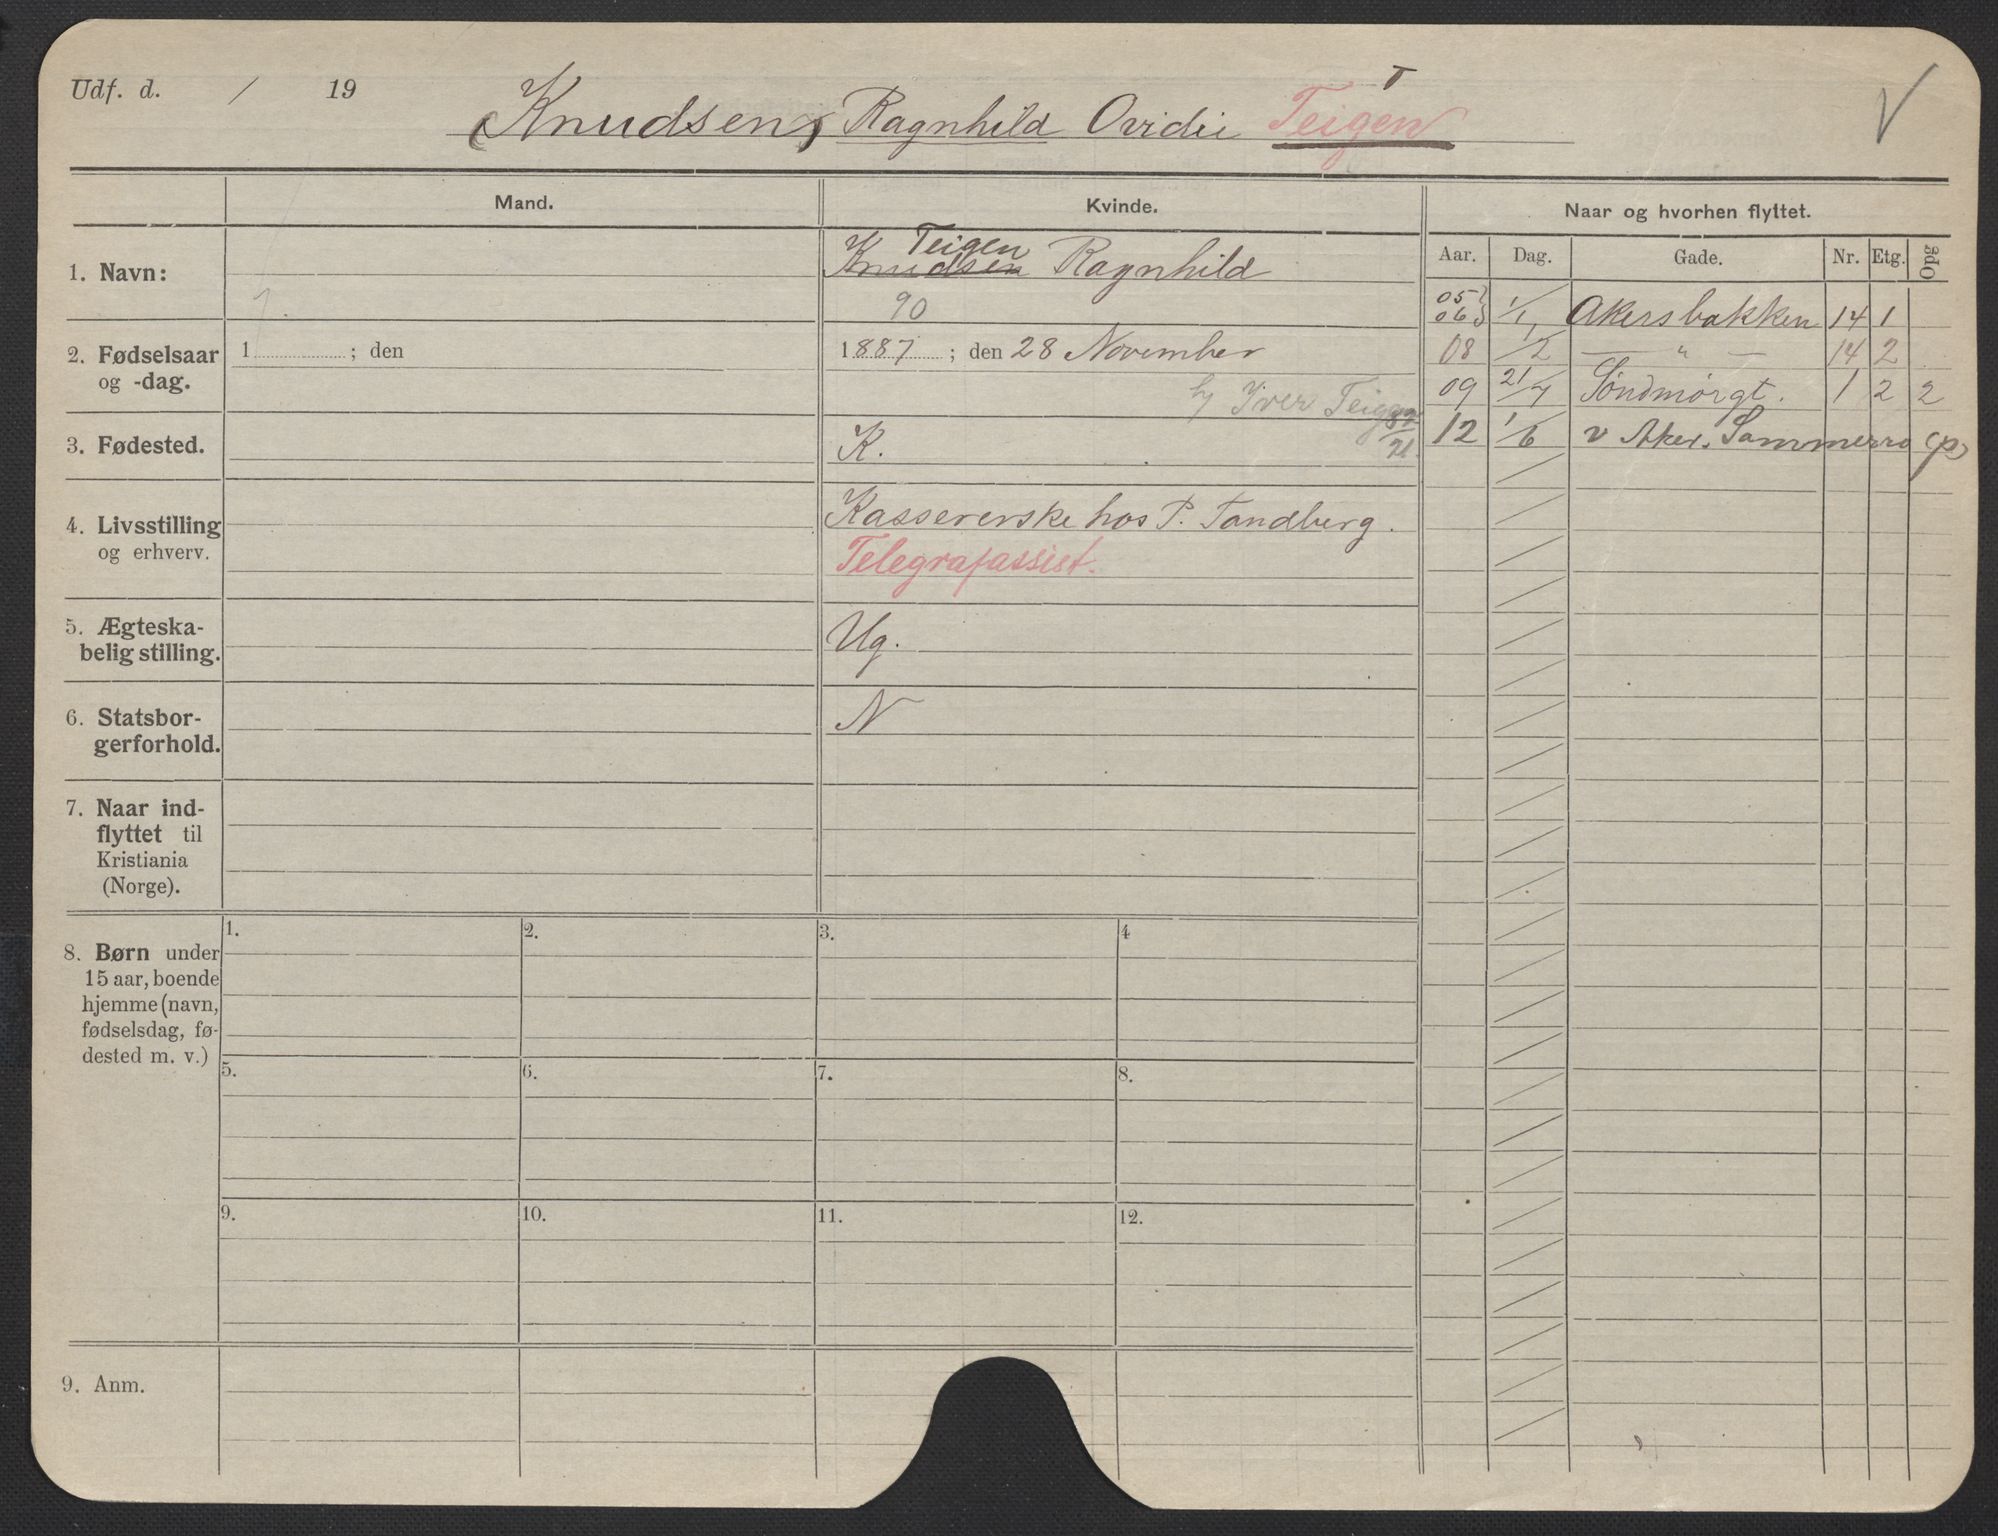 Udf. d. / 19
(Knudsen) Ragnhild Ovidie Teigen
Mand.
Kvinde.
Naar og hvorhen flyttet.
Aar. Dag. Gade. Nr. Etg. Opg
1. Navn:
Teigen
Knudsen Ragnhild
90
05 06 1/1 Akersbakken 14 1
08 1/2 — " — 14 2
09 21/7 Søndmørgt. 1 2 2
12 1/6 v Aker. Sommerro (p)
2. Fødselsaar
og -dag.
1 ; den
1887 ; den 28 November
Iver Teigen
3. Fødested.
K.
4. Livsstilling
og erhverv.
Kassererske hos P. Tandberg.
Telegrafassist.
5. Ægteska-
belig stilling.
Ug.
6. Statsbor-
gerforhold.
N
7. Naar ind-
flyttet til
Kristiania
(Norge).
8. Børn under
15 aar, boende
hjemme (navn,
fødselsdag, fø-
dested m. v.)
1. 2. 3. 4
5. 6. 7. 8.
9. 10. 11. 12.
9. Anm.